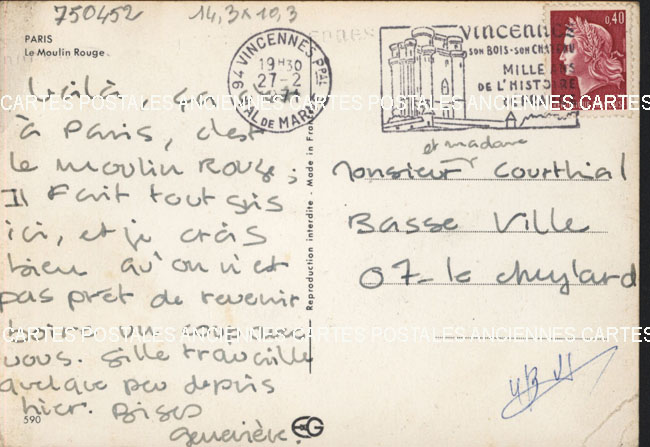 750452
14,3 x 10,3
PARIS
Le Moulin Rouge
94 VINCENNES PPAL
19H30
27-2
VAL DE MARNE
VINCENNES
SON BOIS-SON CHATEAU
MILLE ANS
DE L'HISTOIRE
0,40
Voilà, ça
CARTES POSTALES ANCIENNES CARTES POSTALES ANCIENNES CARTES
à Paris, c'est
le moulin Rouge,
Il fait tout gris
ici, et je crois
bien qu'on n'est
pas pret de revenir
boire un coup chez
CARTES POSTALES ANCIENNES CARTES POSTALES ANCIENNES CARTES
vous. Gille travaille
quelque peu depuis
hier. Bises
Geneviève.
590
Reproduction interdite - Made in France
EG
et madame
Monsieur Courthial
Basse Ville
07- le cheylard